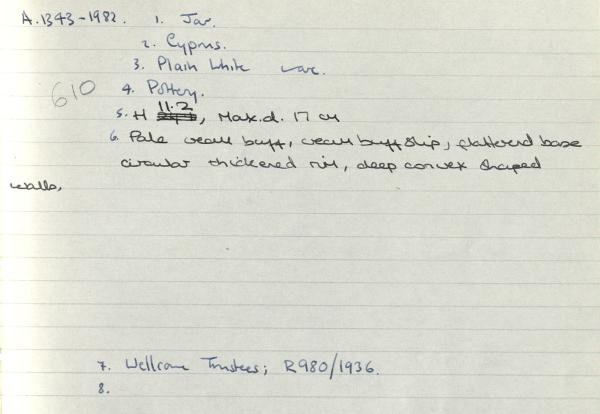 A.1343-1982. 1. Jar.
2. Cyprus.
3. Plain White ware.
610
4. Pottery.
5. H 11.2, Max.d. 17 cm
6. Pale cream buff, cream buff slip, flattened base
circular thickened rim, deep convex shaped
walls,
7. Wellcome Trustees; R980/1936.
8.